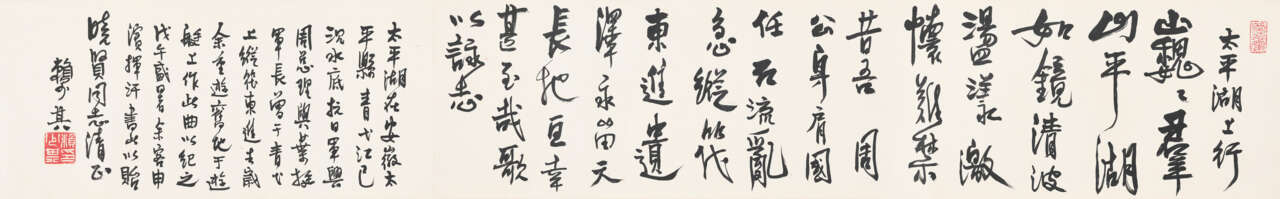 太平湖上行
山巍〻羣
山平湖
如鏡清波
盪漾激
懷難禁
昔吾周
公身肩國
任石流亂
急縱筏
東進遺
澤永留天
長地亘幸
甚至哉歌
以詠志
太平湖在安徽太
平縣青弋江已
沉水底抗日軍興
周總理與葉挺
軍長曾于青弋
上縱筏東進去歲
余重遊舊地于遊
艇上作此曲以紀之
戊午盛暑余客申
濱揮汗書此以貽
曉賢同志清正
賴少其